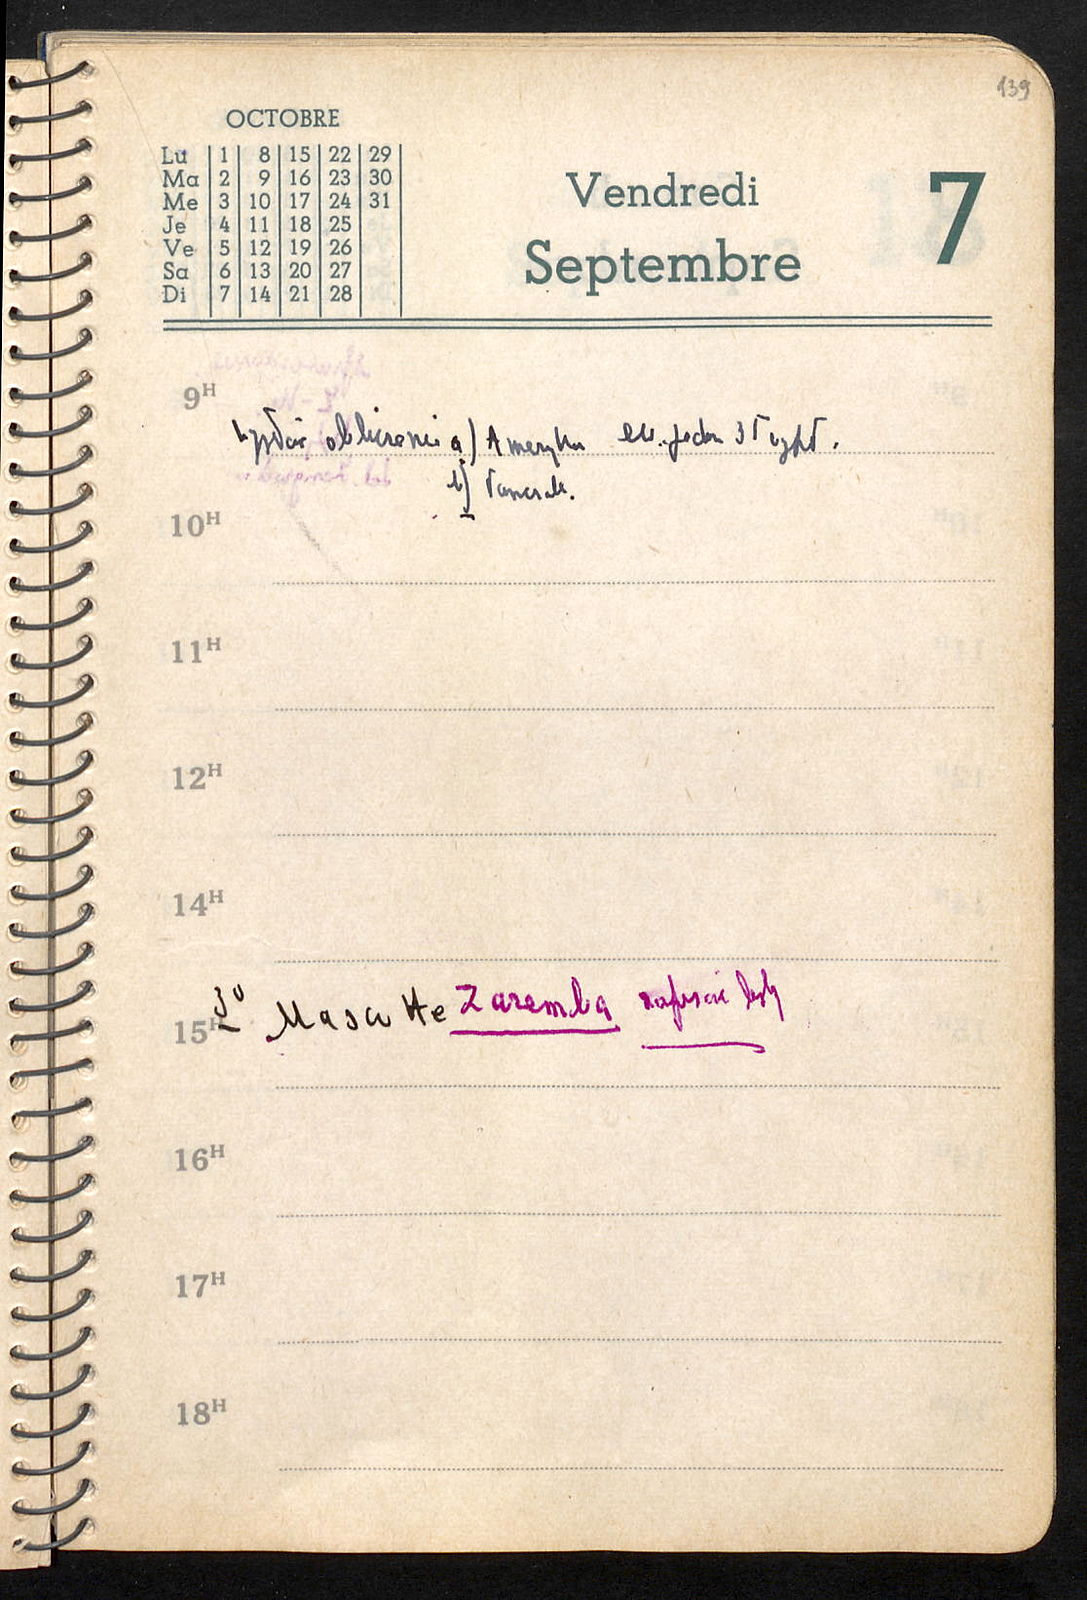 139
OCTOBRE
Lu 1 8 15 22 29
Ma 2 9 16 23 30
Me 3 10 17 24 31
Je 4 11 18 25
Ve 5 12 19 26
Sa 6 13 20 27
Di 7 14 21 28
Vendredi 7
Septembre
9H
a) Ameryka
b)
10H
11H
12H
14H
30 Masa He Zaremba napisać listy
15H
16H
17H
18H